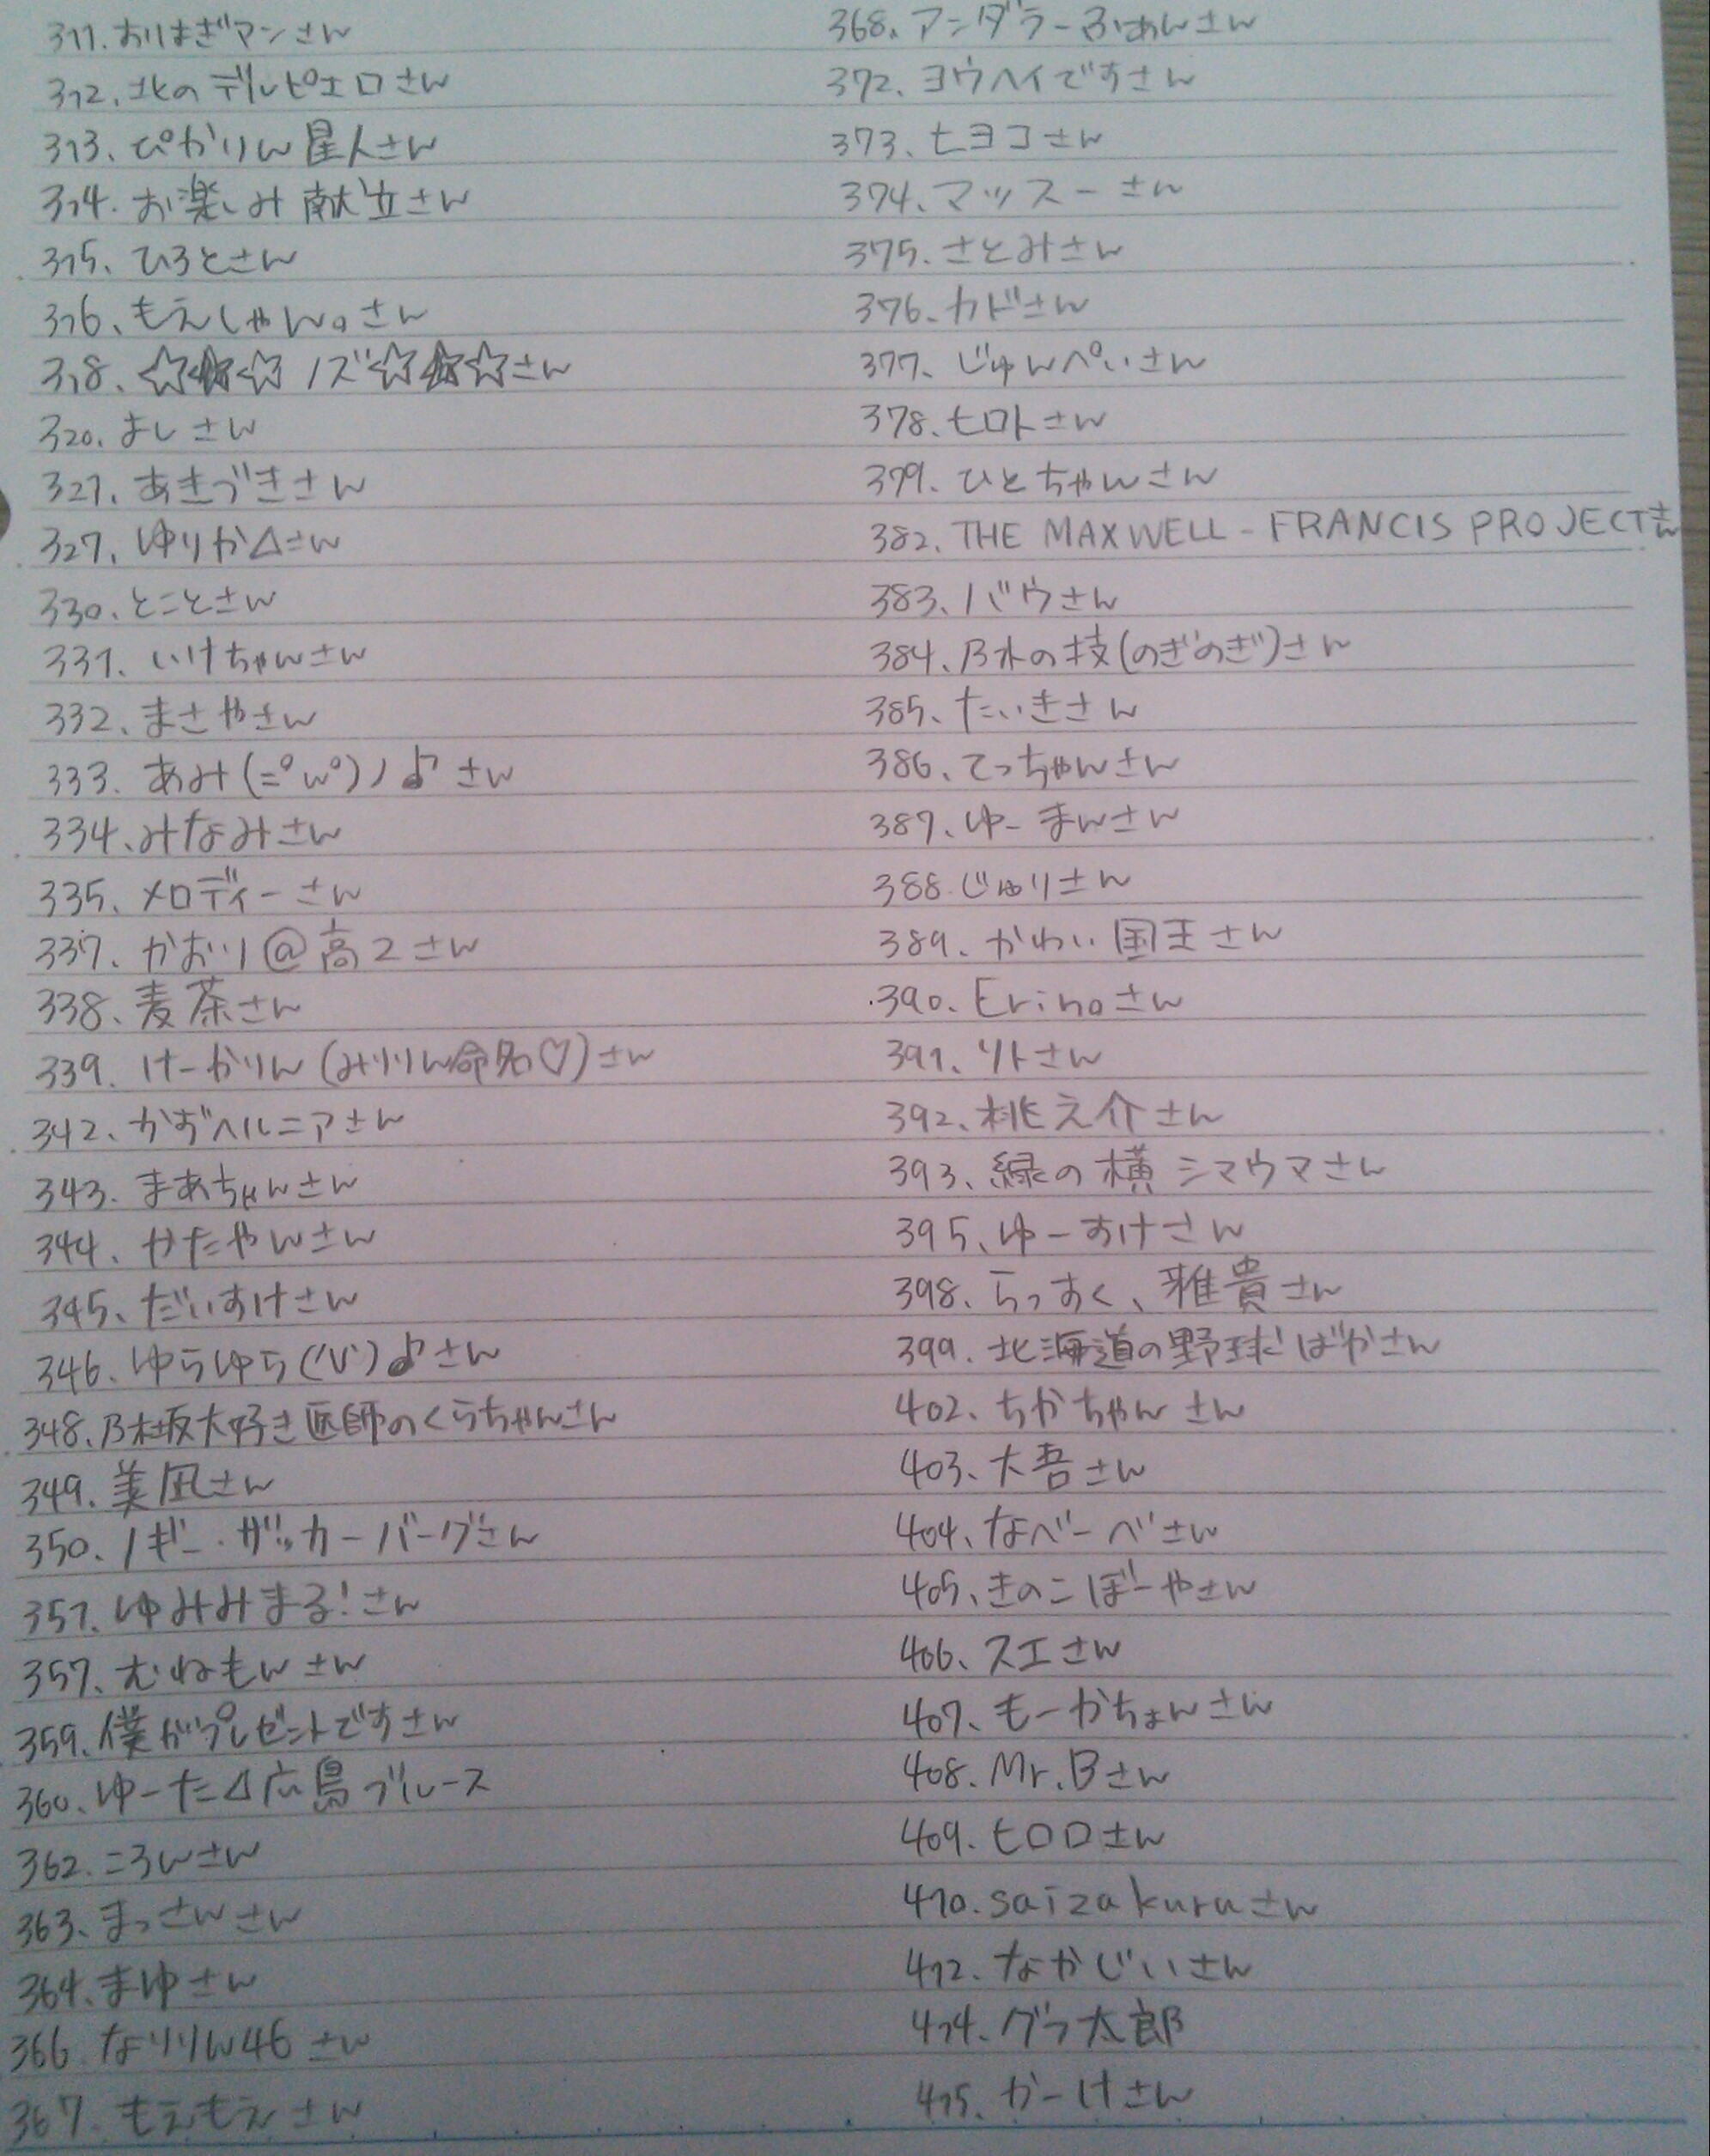 311.おりはぎマンさん
312.北のデルピエロさん
313.ぴかりん星人さん
314.お楽しみ献立さん
315.ひろとさん
316.もえしゃん。さん
318.☆★☆ノズ☆★☆さん
320.よしさん
321.あきづきさん
327.ゆりか△さん
330.とことさん
331.いけちゃんさん
332.まさやさん
333.あみ(=°ω°)ノ♪さん
334.みなみさん
335.メロディーさん
337.かおり@高2さん
338.麦茶さん
339.けーかりん(みりりん命名♡)さん
342.かずヘルニアさん
343.まあちゃんさん
344.かたやんさん
345.だいすけさん
346.ゆらゆら('V')♪さん
348.乃木坂大好き医師のくらちゃんさん
349.美凪さん
350.ノギー・ザッカーバーグさん
351.ゆみみまる!さん
357.むねもんさん
359.僕がプレゼントですさん
360.ゆーた⊿広島ブルース
362.ころんさん
363.まっさんさん
364.まゆさん
366.なりりん46さん
367.もえもえさん
368.アンダラーふぁんさん
372.ヨウヘイですさん
373.ヒヨコさん
374.マッスーさん
375.さとみさん
376.カドさん
377.じゅんぺいさん
378.ヒロトさん
379.ひとちゃんさん
382.THE MAXWELL-FRANCIS PROJECTさん
383.バウさん
384.乃木の技(のぎのぎ)さん
385.たいきさん
386.てっちゃんさん
387.ゆーまんさん
388.じゅりさん
389.かわい国王さん
390.Erinaさん
391.リトさん
392.桃之介さん
393.緑の横シマウマさん
395.ゆーすけさん
398.らっすく、雅貴さん
399.北海道の野球ばかさん
402.ちかちゃんさん
403.大吾さん
404.なべーべさん
405.きのこぼーやさん
406.スエさん
407.もーかちょんさん
408.Mr.Bさん
409.ヒロロさん
410.saizakuruさん
412.なかじいさん
414.グラ太郎
415.かーけさん